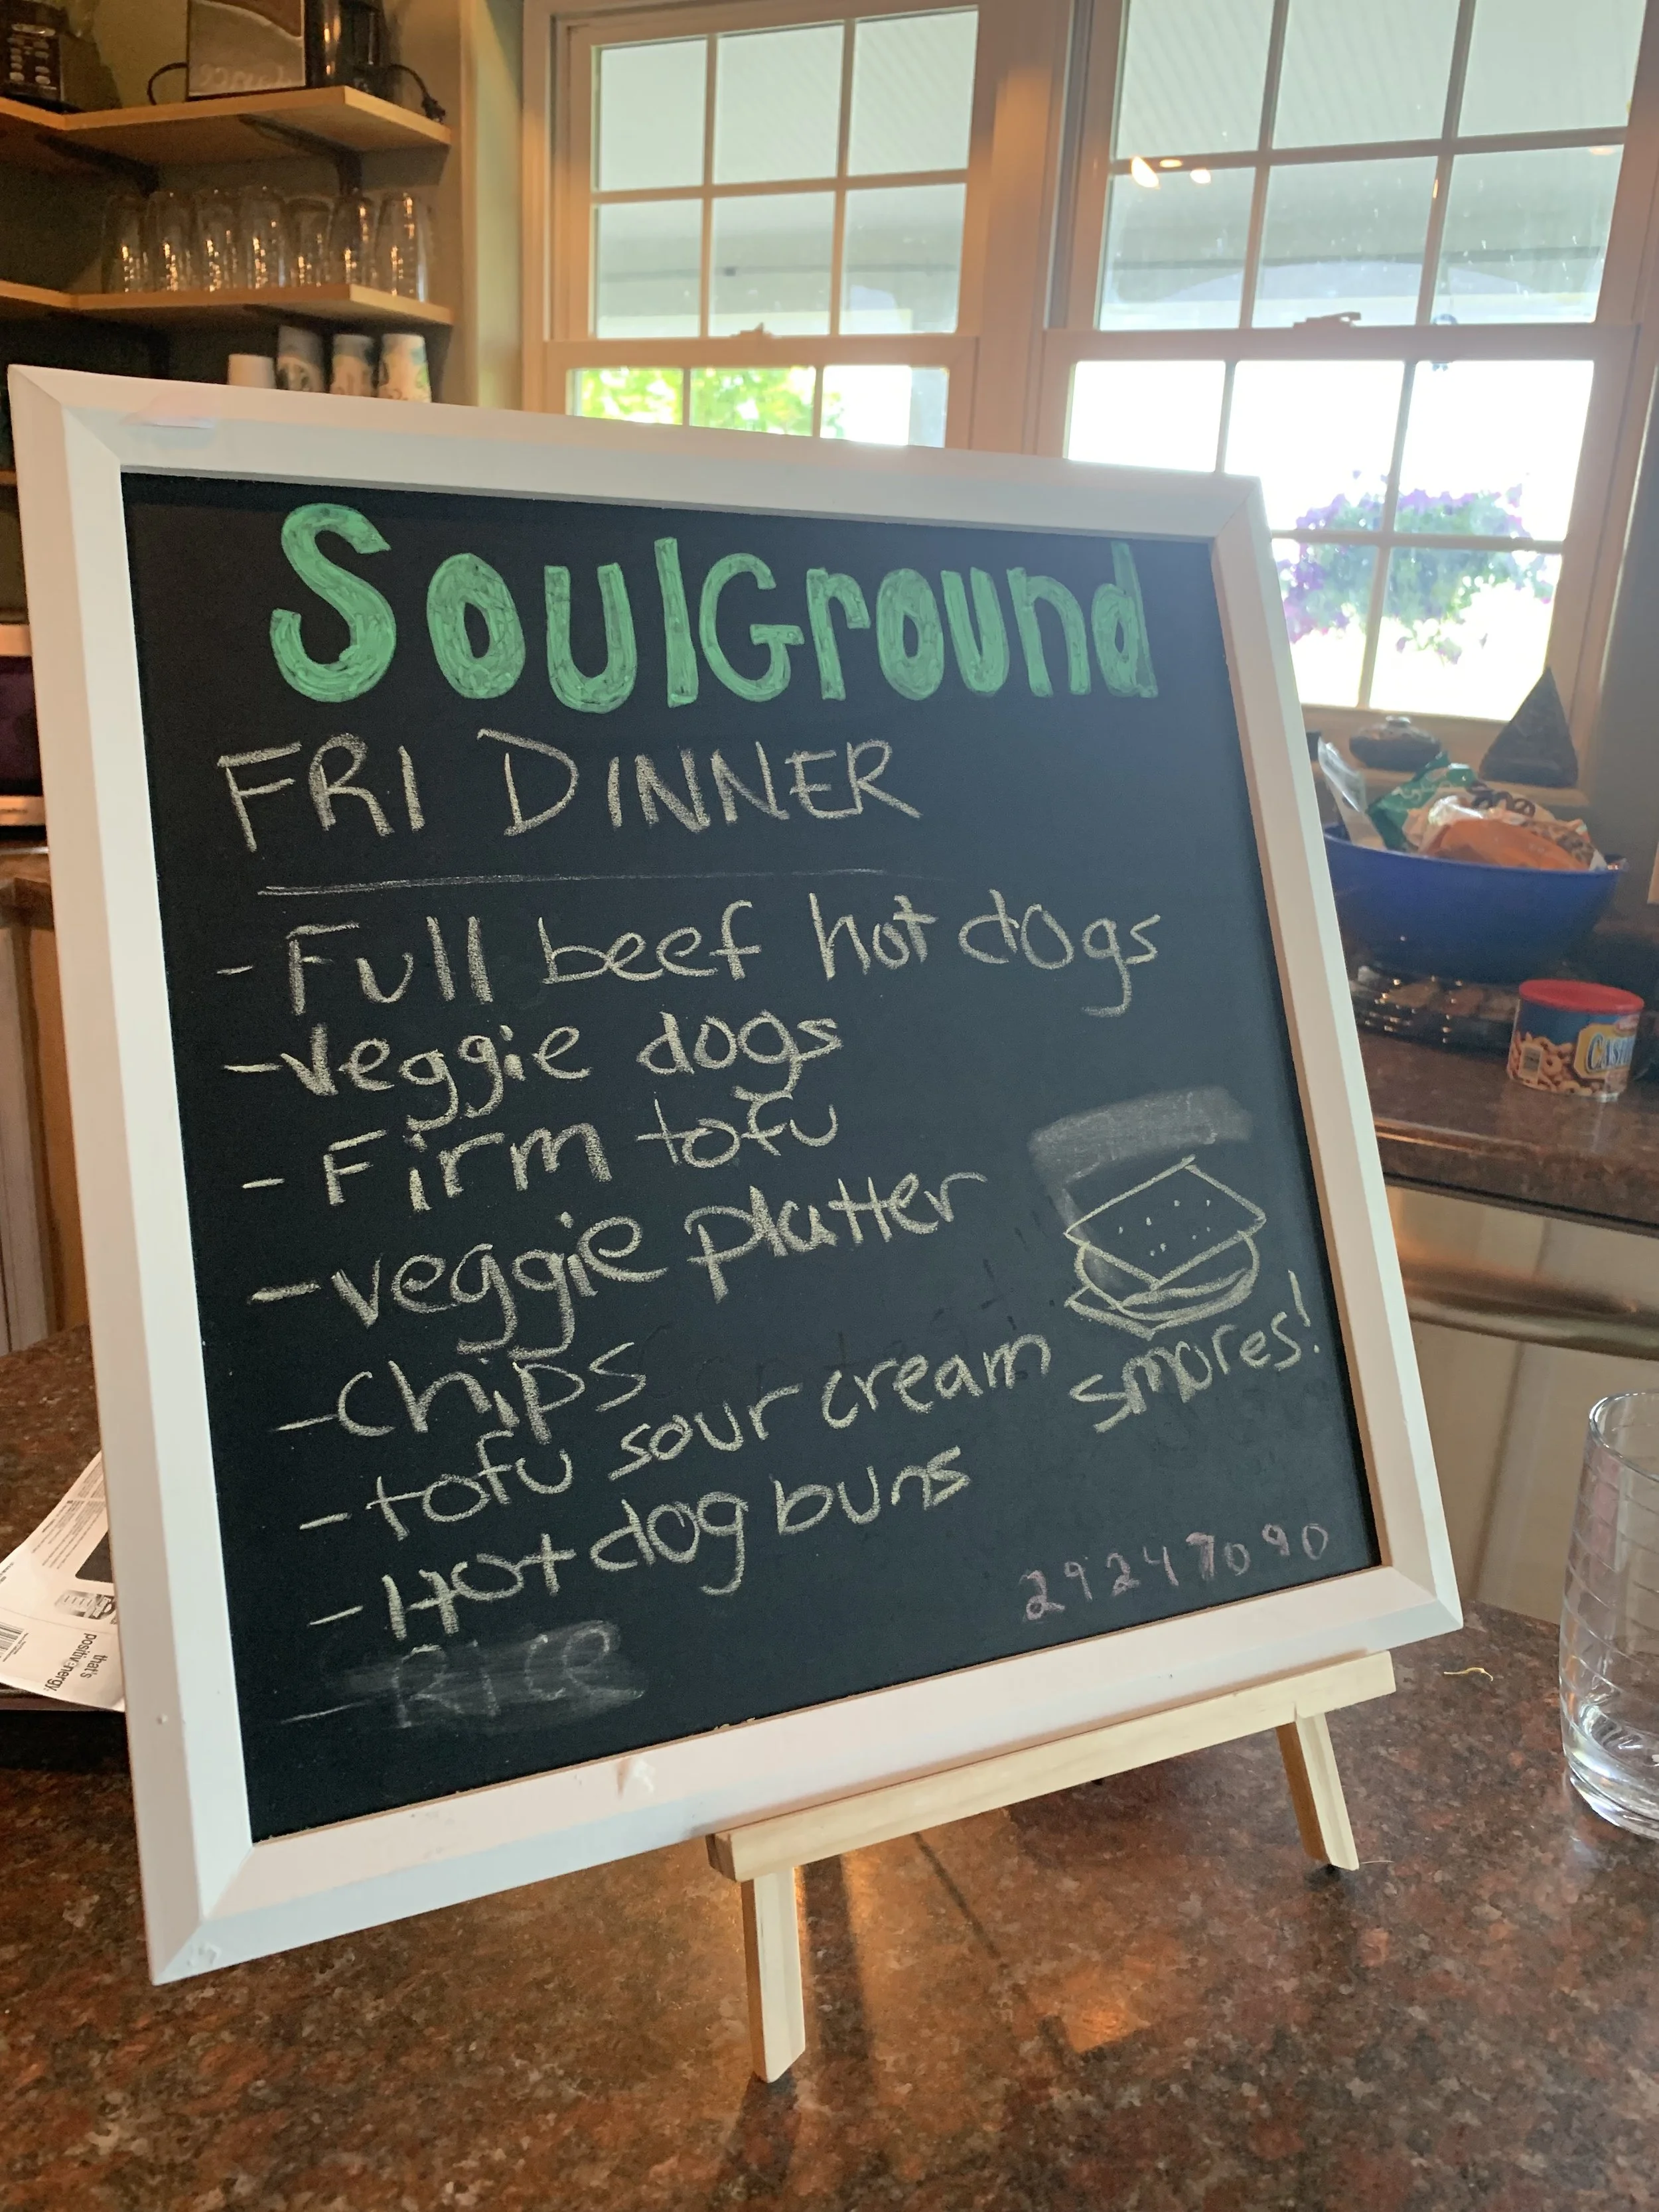 SoulGround
FRI DINNER
- Full beef hot dogs
- Veggie dogs
- Firm tofu
- veggie platter
- Chips
- tofu sour cream
- Hot dog buns
- RICE
smores!
29247090
that's
positivenergy.